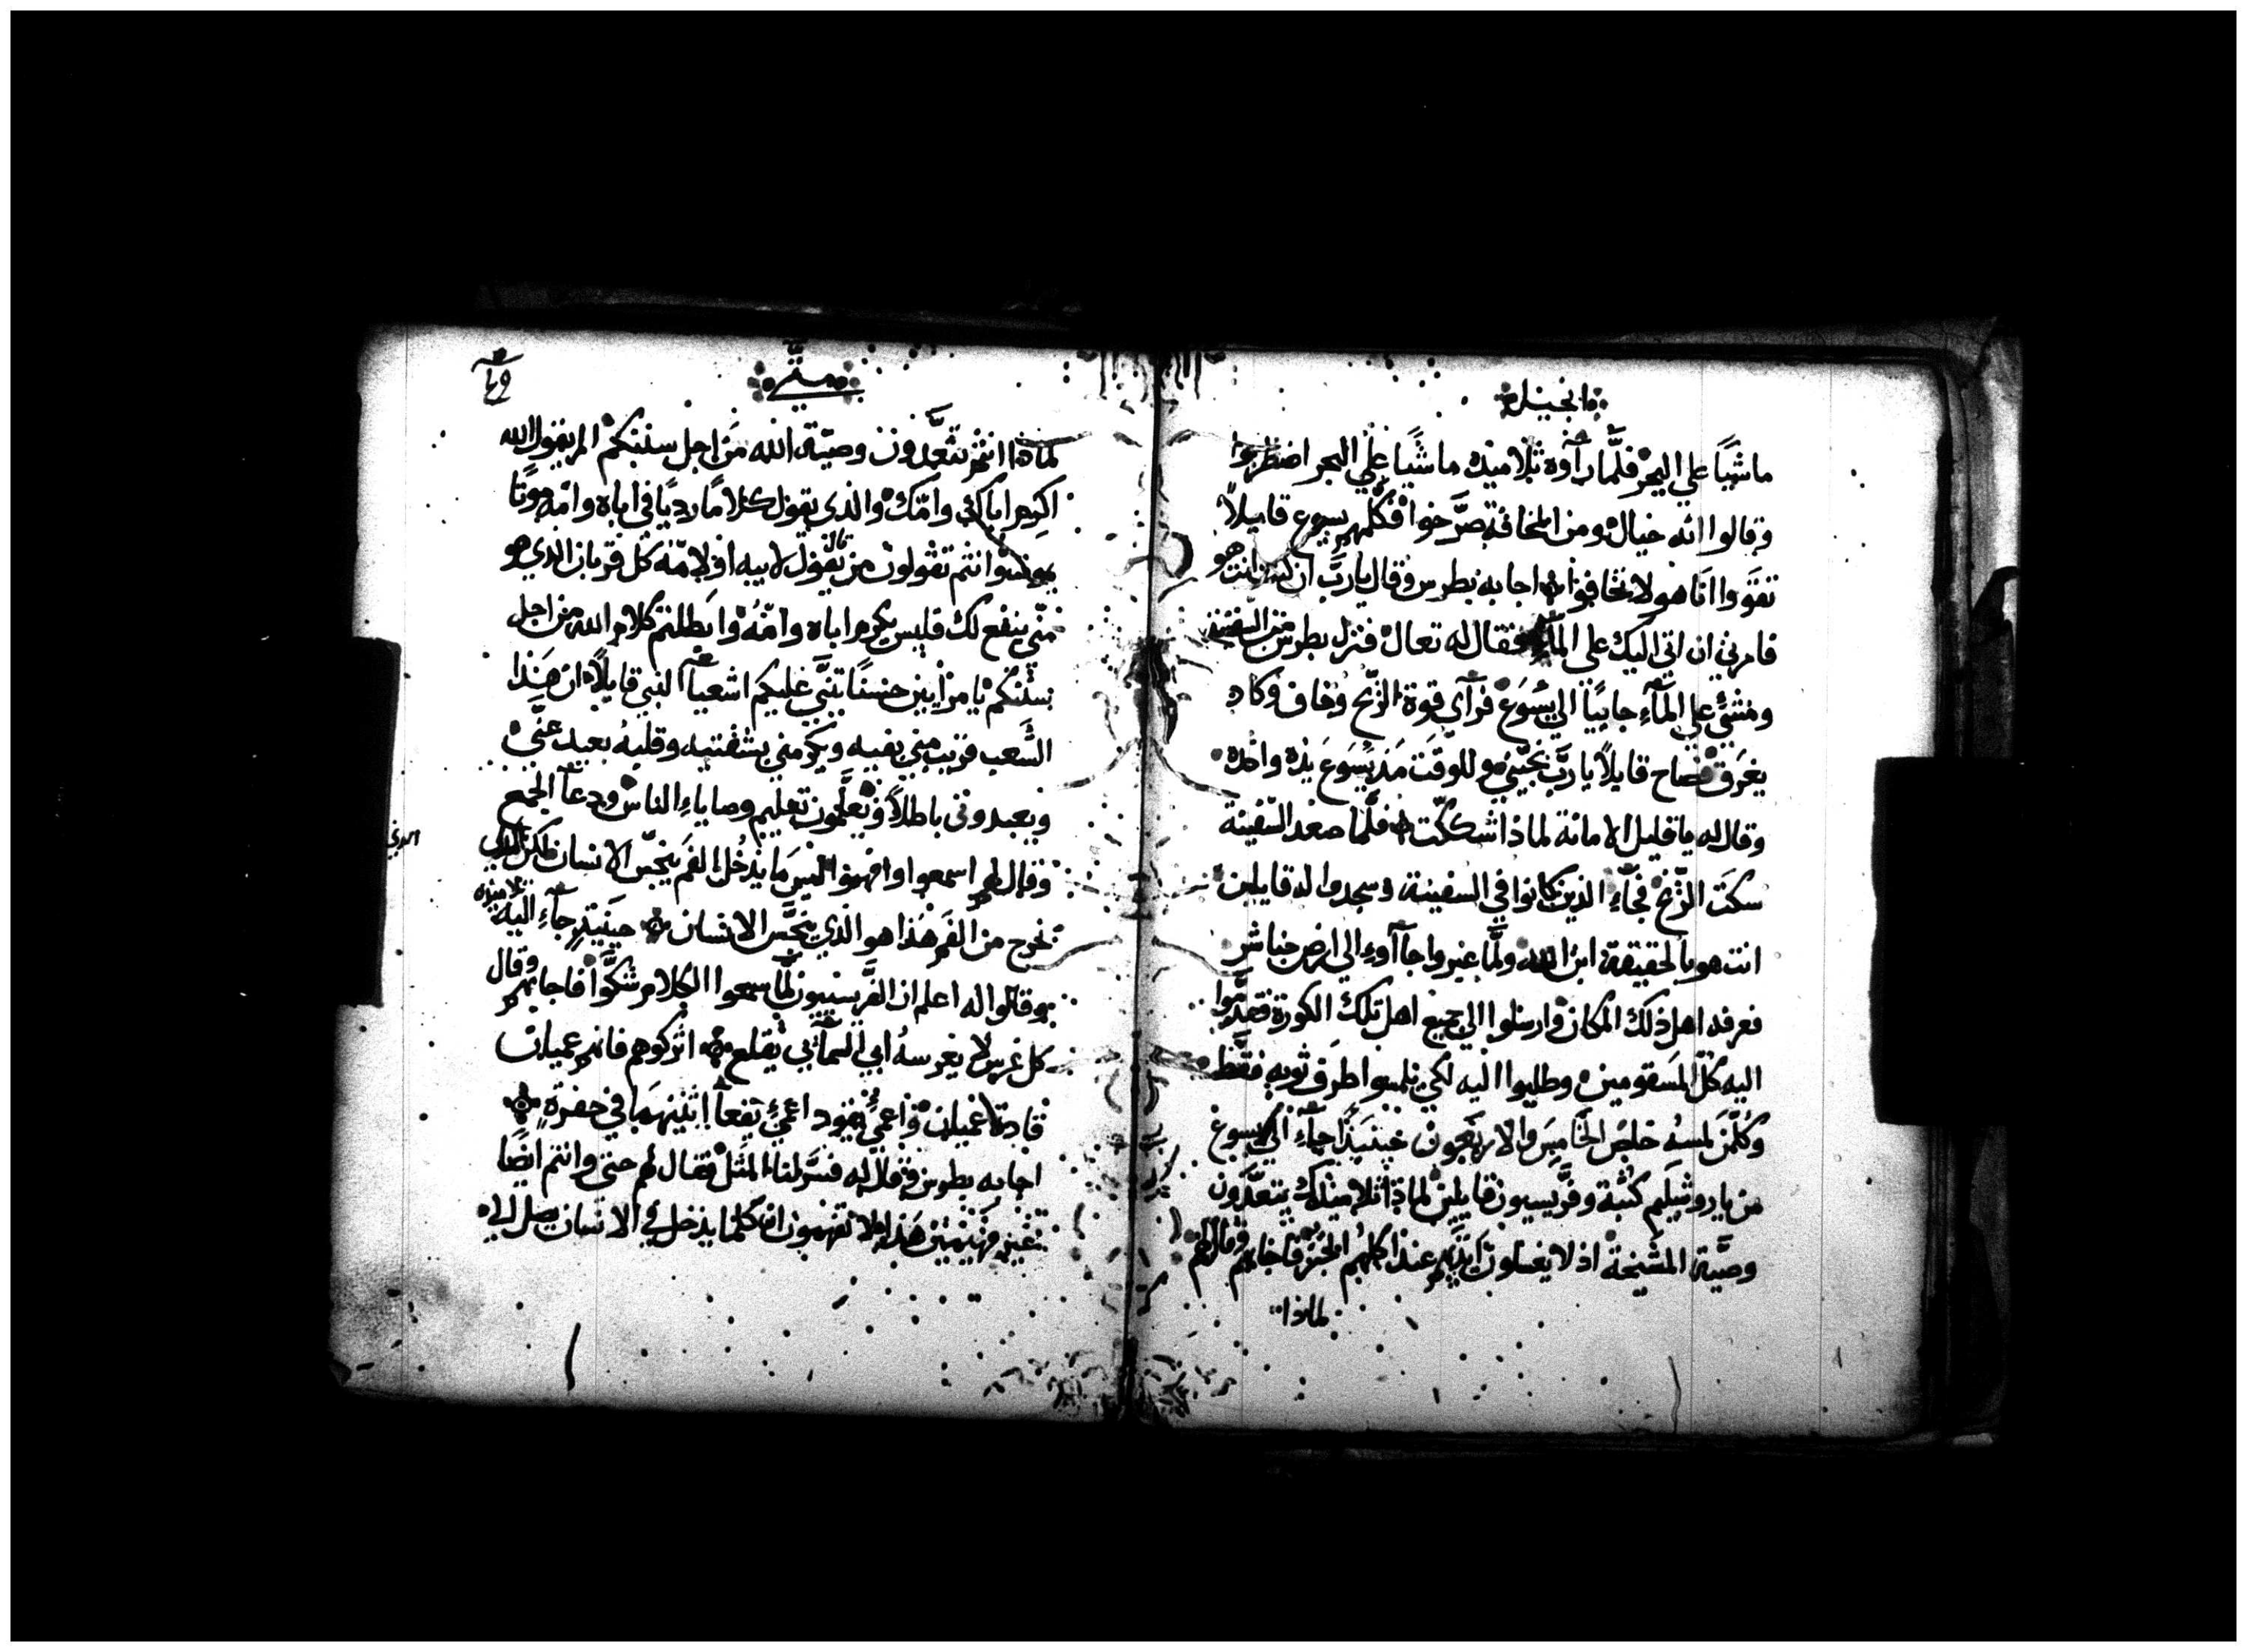 انجيل
ماشيًا علي البحر فلمَّا رآوه تلاميذه ماشيًا علي البحر اضطربوا
وقالوا انه خيال ومن المخافة صرَّخوا فكلمهم يسوع قايلاً
تقووا انا هو لا تخافوا اجابه بطرس وقال يا ربَّ ان كنت انت هو
فامرني ان اتي اليك علي المآء فقال له تعال فنزل بطرس من السفينة
ومشي علي المآء جاييًا الي يسوع فرآي قوة الريح وخاف وكاد
يغرق فصاح قايلاً يا ربّ نجيني وللوقت مد يسوع يده واخده
وقال له يا قليل الامانة لماذا شككّت فلمَّا صعد السفينة
سكت الريح فجآء الذين كانوا في السفينة وسجدوا له قايلين
انت هو بالحقيقة ابن الله ولمَّا عبروا جآاوء الي ارض جناشر
فعرفه اهل ذلك المكان وارسلوا الي جميع اهل تلك الكورة فقدَّموا
اليه كل المسقومين وطلبوا اليه لكي يلمسوا طرف ثوبه فقط
وكلمن لمسه خلص الخامس والاربعون حينيذٍ جآء الي يسوع
من ياروشيلم كتبة وفريسيون قايلين لماذا تلاميذك يتعدَّون
وصيَّة المشيخة اذ لا يغسلون ايديهم عند اكلهم الخبز فاجابهم وقال لهم
لماذا
متَّي
٤٩
لماذا انتم تتعَّدون وصيّة الله من اجل سننكم الم يقول الله
اكرم اباك وامّك والذي يقول كلامًا رديًا في اباه وامّه موتًا
يموت وانتم تقولون من قال لابيه او لامّه كل قربان الذي هو
منّي ينفع لك فليس يكرم اباه وامّهُ وابطلتم كلام الله من اجل
سننكم يا مرايين حسنًا تنبَّي عليكم اشعيآ النبي قايلاً ان هَذا
الشَّعب قريب منّي بفيه ويكرمني بشفتيه وقلبهُ بعيد عنّي
ويعبدوني باطلاً ويعلَّمون تعليم وصاياء الناس ودعآ الجمع
وقال لهم اسمعوا وافهموا ليس ما يدخُل الفم ينجّس الانسان لكن الذي
الذي
يخرج من الفم هذا هو الذي ينجَّس الانسان حينيذٍ جآء اليه تلاميذه
وقالوا له اعلم ان الفرَّيسييون لمَّا سمعوا الكلام شكَّوا فاجابهم وقال
كل غرس لا يغرسهُ ابي السمآيي يقلع اتركوهم فانهم عميان
قادة عميان واعميً يقود اعميً يقعآ اثنينهما في حفرةٍ
اجابه بطرس وقال له فسّر لنا المثل فقال لهم حتي وانتم ايضًا
غير فهيمين هَذا ولا تفهمون ان كلما يدخل في الانسان يصل الي